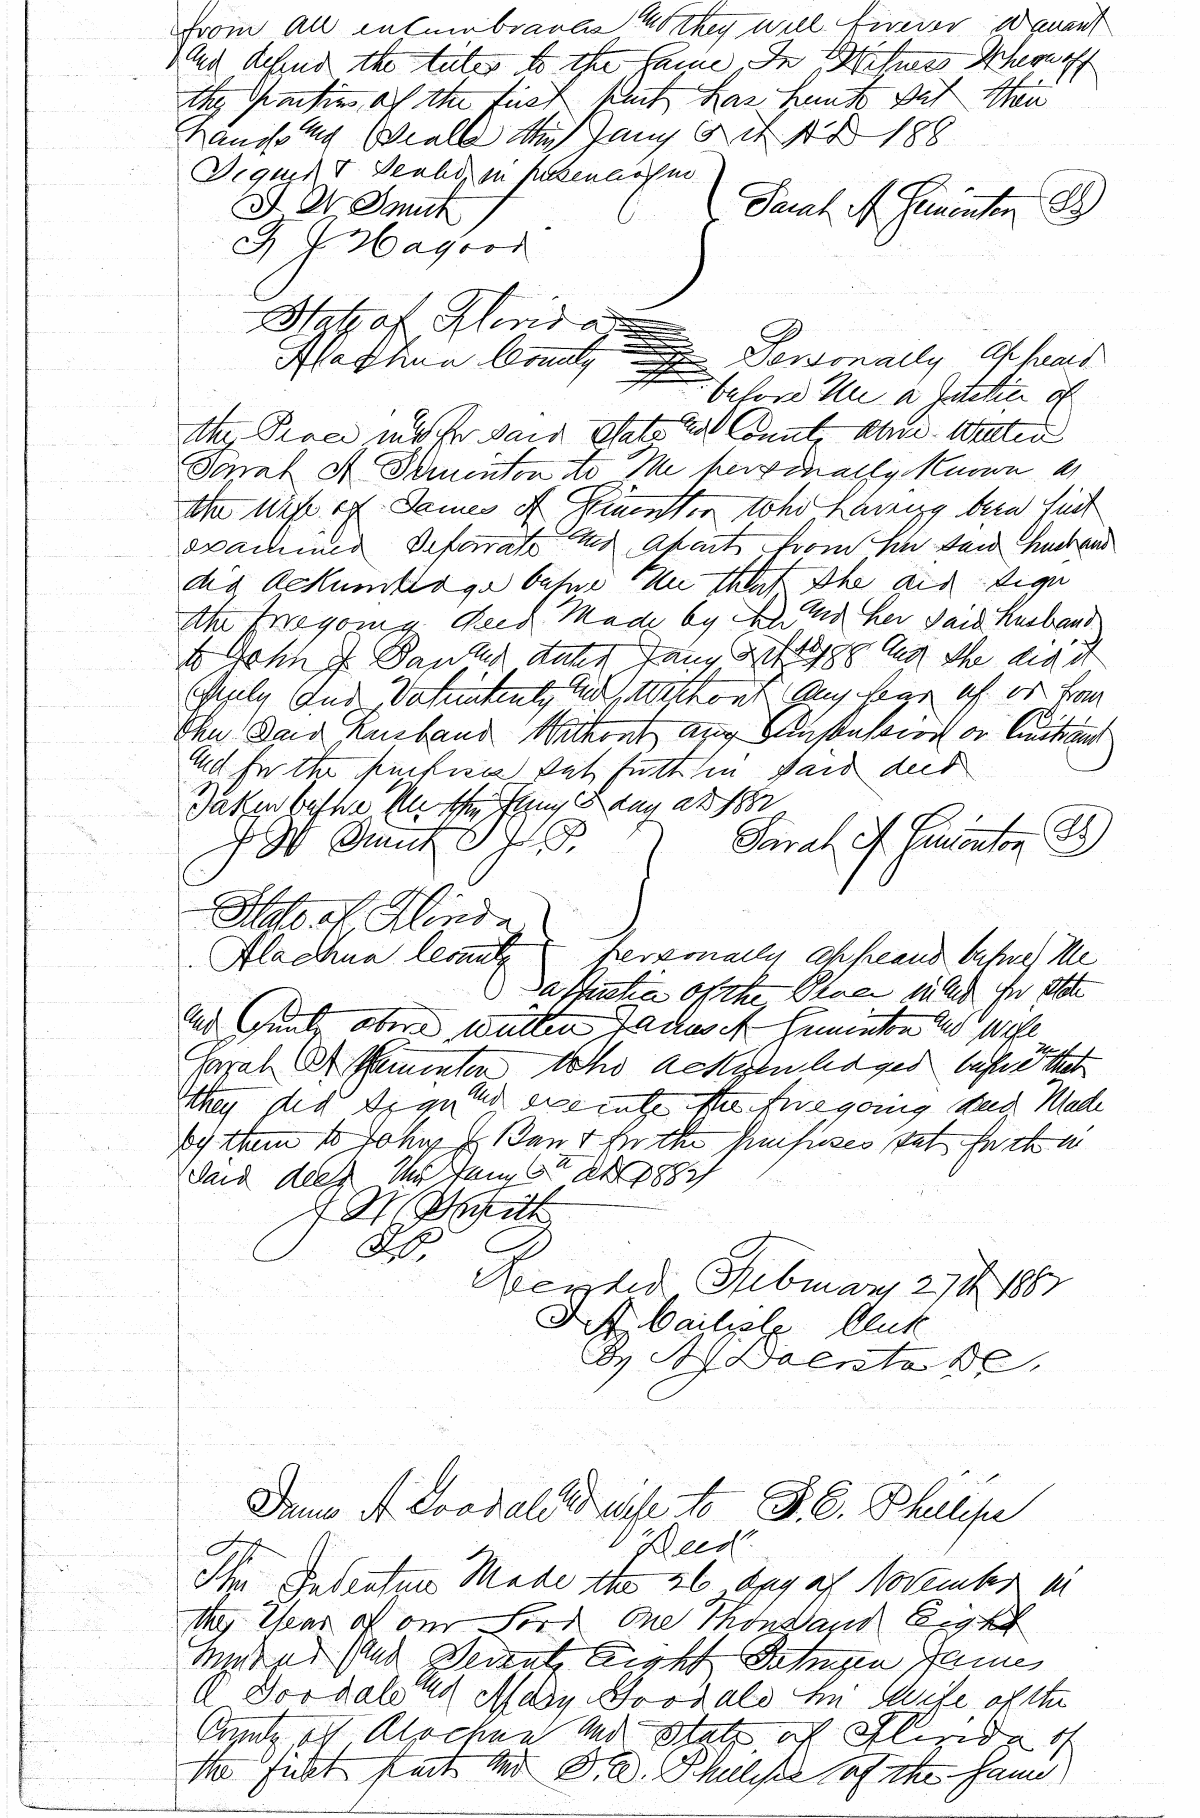 from all encumbrances and they will forever Warrant
and defend the titles to the Same In Witness Whereoff
the parties of the first part has hereunto Set their
hands and Seals this Jany 6th AD 188
Signed & Sealed in presence of me
J W Smith Sarah A Siminton LS
F J Hagood
State of Florida
Alachua County Personally appeard
before Me a Justice of
the Peace in and for said State and County above Written
Sarah A Siminton to Me personally Known as
the Wife of James A Siminton who having been first
examined Seperate and apart from her said husband
did acknowledge before Me that She did sign
the foregoing deed Made by her and her said Husband
to John J Barr and dated Jany 188 and she did it
freely and Voluntarily and Without any fear of or from
her Said Husband Without any Compulsion or Constraint
and for the purposes set forth in said deed
Taken before Me this Jany 6 day AD 1882
J W Smith J.P. Sarah A Siminton LS
State of Florida
Alachua County personally appeard before Me
a Justice of the Peace in and for State
and County above written James A Siminton and wife
Sarah A Siminton who acknowledged before me that
they did sign and execute the foregoing deed Made
by them to John J Barr & for the purposes set forth in
said deed this Jany 6th AD 1882
J W Smith
J.P.
Recorded February 27th 1882
J A Carlisle Clerk
By DC.
James A Goodale and wife to F.E. Phillips
"Deed"
This Indenture Made the 26 day of November in
the Year of our Lord One Thousand Eight
Hundred and Seventy Eight Between James
A Goodale and Mary Goodale his Wife of the
County of Alachua and State of Florida of
the first part and Phillips of the Same